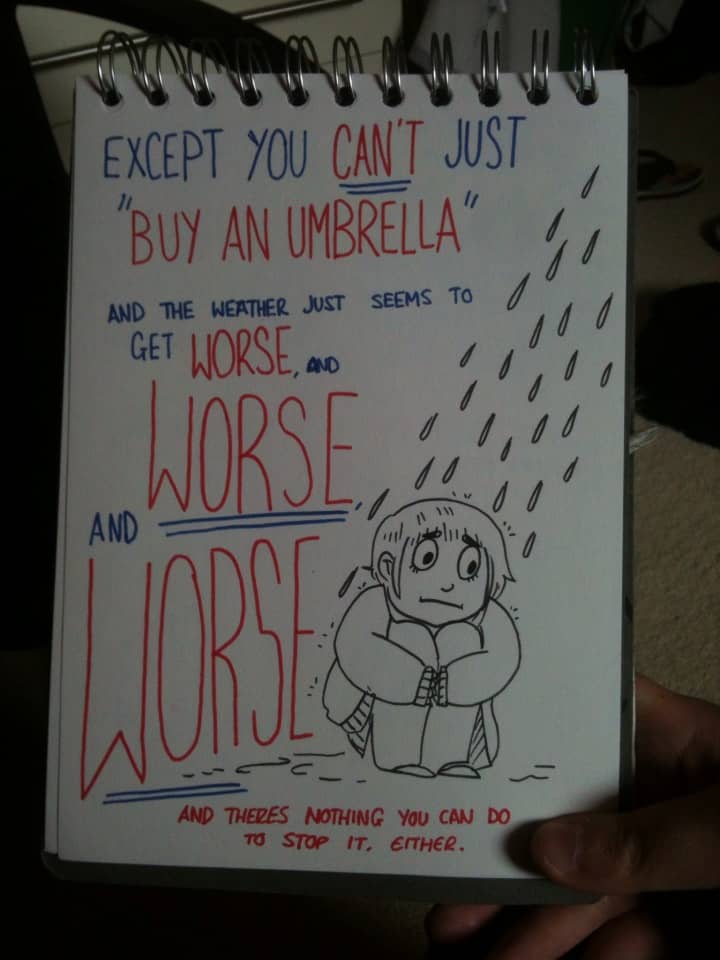 EXCEPT YOU CAN'T JUST
"BUY AN UMBRELLA"
AND THE WEATHER JUST SEEMS TO
GET WORSE, AND
WORSE,
AND
WORSE
AND THERES NOTHING YOU CAN DO
TO STOP IT, EITHER.